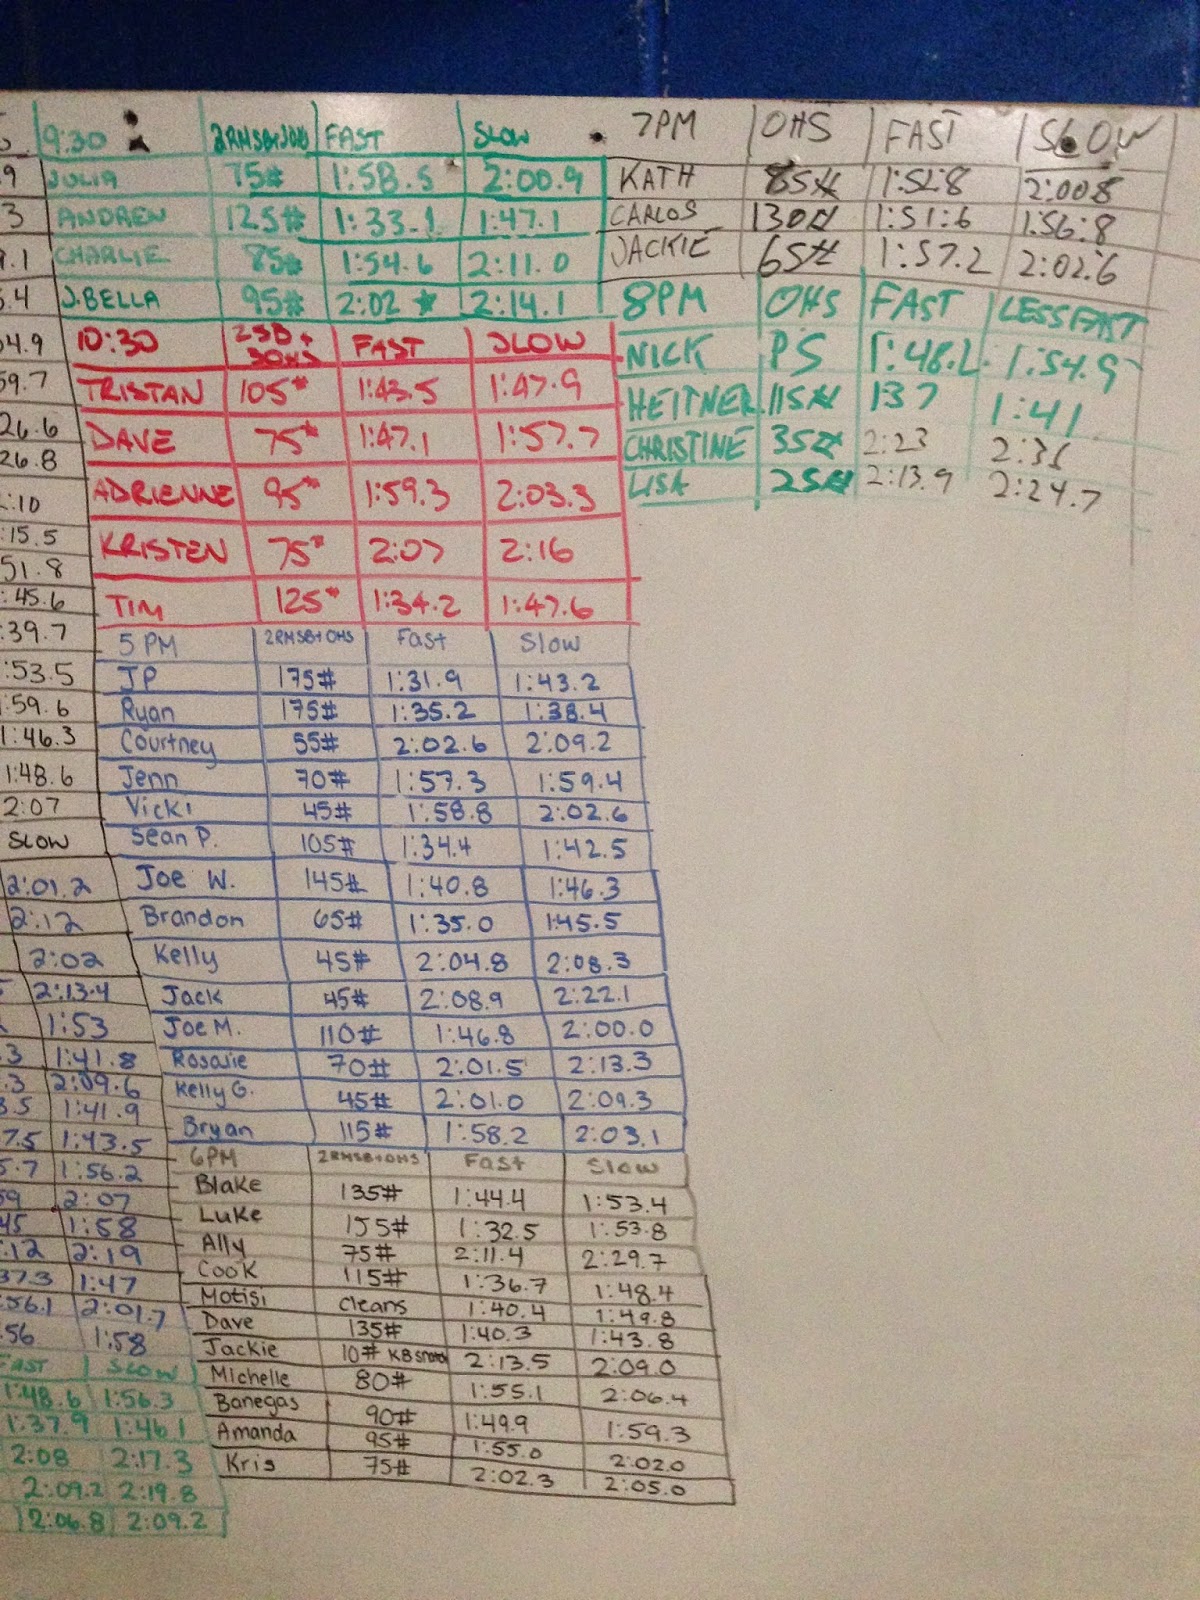 9:30 2RMSB+OHS FAST SLOW
JULIA 75# 1:58.5 2:00.9
ANDREW 125# 1:33.1 1:47.1
CHARLIE 85# 1:54.6 2:11.0
J.BELLA 95# 2:02 * 2:14.1
10:30 2SB + 3OHS FAST SLOW
TRISTAN 105# 1:43.5 1:47.9
DAVE 75# 1:47.1 1:57.7
ADRIENNE 95# 1:59.3 2:03.3
KRISTEN 75# 2:07 2:16
TIM 125# 1:34.2 1:47.6
5 PM 2RMSB+OHS Fast Slow
JP 175# 1:31.9 1:43.2
Ryan 175# 1:35.2 1:38.4
Courtney 55# 2:02.6 2:09.2
Jenn 70# 1:57.3 1:59.4
Vicki 45# 1:58.8 2:02.6
Sean P. 105# 1:34.4 1:42.5
Joe W. 145# 1:40.8 1:46.3
Brandon 65# 1:35.0 1:45.5
Kelly 45# 2:04.8 2:08.3
Jack 45# 2:08.9 2:22.1
Joe M. 110# 1:46.8 2:00.0
Rosarie 70# 2:01.5 2:13.3
Kelly G. 45# 2:01.0 2:09.3
Bryan 115# 1:58.2 2:03.1
6PM 2RMSB+OHS Fast Slow
Blake 135# 1:44.4 1:53.4
Luke 155# 1:32.5 1:53.8
Ally 75# 2:11.4 2:29.7
Cook 115# 1:36.7 1:48.4
Motisi cleans 1:40.4 1:49.8
Dave 135# 1:40.3 1:43.8
Jackie 10# KB snatch 2:13.5 2:09.0
Michelle 80# 1:55.1 2:06.4
Banegas 90# 1:49.9 1:59.3
Amanda 95# 1:55.0 2:02.0
Kris 75# 2:02.3 2:05.0
7PM OHS FAST SLOW
KATH 85# 1:52:8 2:00.8
CARLOS 130# 1:51:6 1:56:8
JACKIE 65# 1:57.2 2:02.6
8PM OHS FAST LESS FAST
NICK PS 1:48.2 1:54.9
HEITNER 115# 137 1:41
CHRISTINE 35# 2:23
LISA 25# 2:13.9 2:24.7
9
3
9.1
5.4
54.9
59.7
26.6
26.8
2:10
:15.5
51.8
:45.6
:39.7
:53.5
:59.6
1:46.3
1:48.6
2:07
SLOW
2:01.2
2:12
2:02
2:13.4
1:53
.3 1:41.8
.3 2:09.6
3.5 1:41.9
7.5 1:43.5
5.7 1:56.2
59 2:07
45 1:58
:12 2:19
37.3 1:47
:56.1 2:01.7
:56 1:58
FAST SLOW
1:48.6 1:56.3
1:37.9 1:46.1
2:08 2:17.3
2:09.2 2:19.8
2:06.8 2:09.2